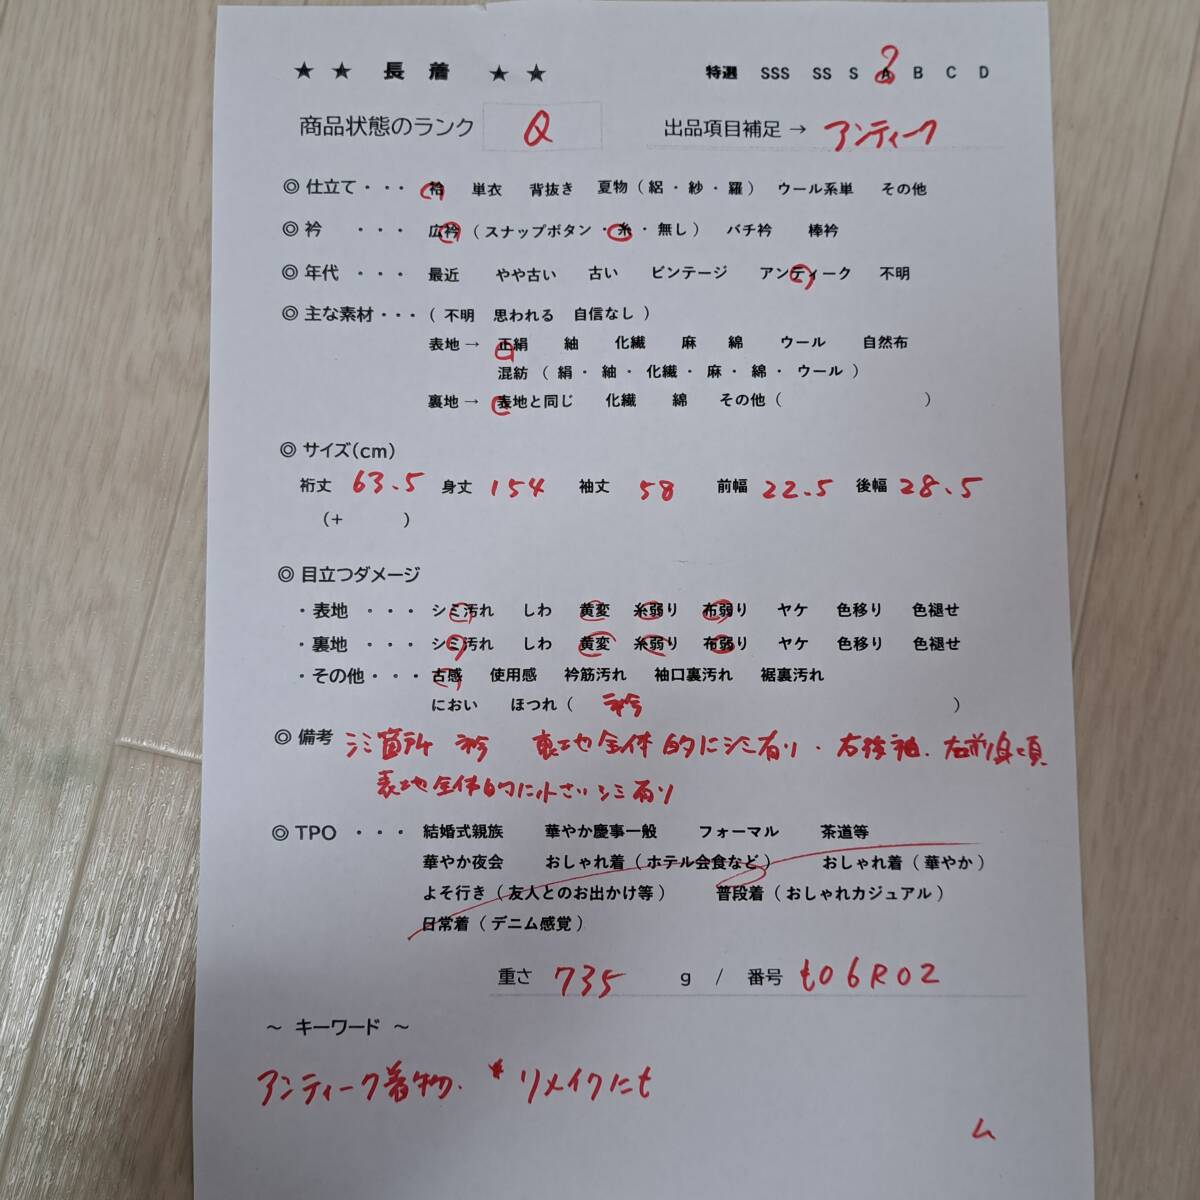 ★ ★ 長 着 ★ ★ 特選 SSS SS S A B C D
商品状態のランク Q 出品項目補足 → アンティーク
◎ 仕立て ・・・ 袷 単衣 背抜き 夏物 ( 絽 ・ 紗 ・ 羅 ) ウール系単 その他
◎ 衿 ・・・ 広衿 ( スナップボタン ・ 糸 ・ 無し ) バチ衿 棒衿
◎ 年代 ・・・ 最近 やや古い 古い ビンテージ アンティーク 不明
◎ 主な素材 ・・・ ( 不明 思われる 自信なし )
表地 → 正絹 紬 化繊 麻 綿 ウール 自然布
混紡 ( 絹 ・ 紬 ・ 化繊 ・ 麻 ・ 綿 ・ ウール )
裏地 → 表地と同じ 化繊 綿 その他 ( )
◎ サイズ(cm)
裄丈 63.5 身丈 154 袖丈 58 前幅 22.5 後幅 28.5
(+ )
◎ 目立つダメージ
・ 表地 ・・・ シミ汚れ しわ 黄変 糸弱り 布弱り ヤケ 色移り 色褪せ
・ 裏地 ・・・ シミ汚れ しわ 黄変 糸弱り 布弱り ヤケ 色移り 色褪せ
・ その他 ・・・ 古感 使用感 衿筋汚れ 袖口裏汚れ 裾裏汚れ
におい ほつれ ( 衿 )
◎ 備考 シミ箇所 衿 裏地全体的にシミ有り・右後袖、右前身頃
表地全体的に小さいシミ有り
◎ TPO ・・・ 結婚式親族 華やか慶事一般 フォーマル 茶道等
華やか夜会 おしゃれ着 ( ホテル会食など ) おしゃれ着 ( 華やか )
よそ行き ( 友人とのお出かけ等 ) 普段着 ( おしゃれカジュアル )
日常着 ( デニム感覚 )
重さ 735 g / 番号 t06R02
～ キーワード ～
アンティーク着物. * リメイクにも
ム